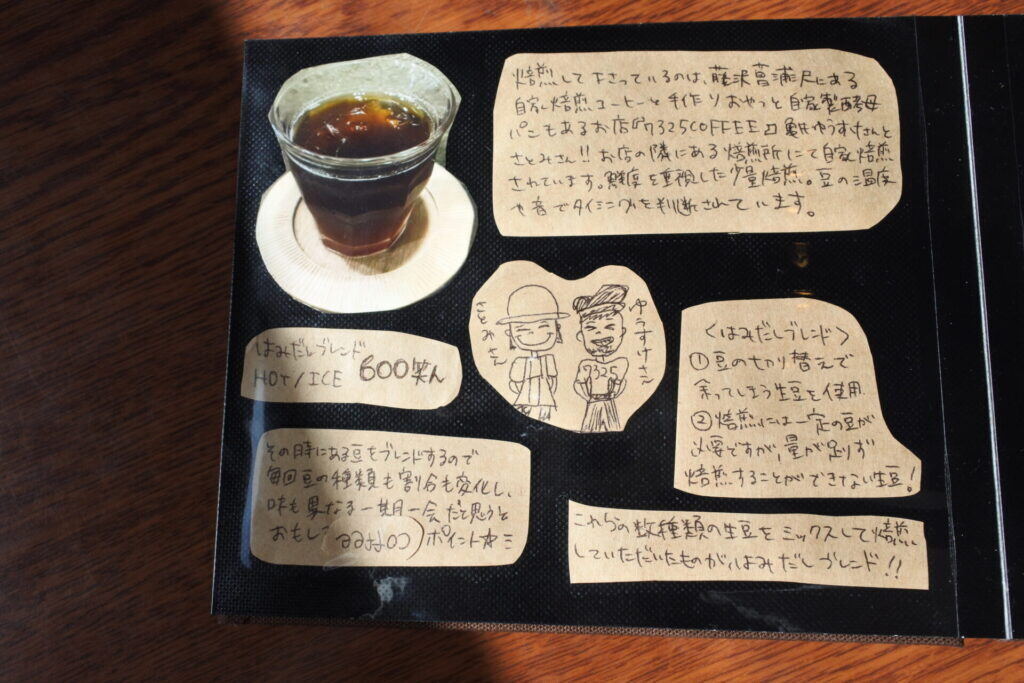 焙煎して下さっているのは、藤沢菖蒲沢にある
自家焙煎コーヒーと手作りおやつと自家製酵母
パンもあるお店『7325COFFEE』亀井ゆうすけさんと
さとみさん!! お店の隣にある焙煎所にて自家焙煎
されています。鮮度を重視した少量焙煎。豆の温度
や音でタイミングを判断されています。
さとみさん
ゆうすけさん
7325
はみだしブレンド
HOT/ICE 600笑ん
〈はみだしブレンド〉
①豆の切り替えで
余ってしまう生豆を使用
②焙煎には一定の豆が
必要ですが、量が足りず
焙煎することができない生豆!
その時にある豆をブレンドするので
毎回豆の種類も割合も変化し、
味も異なる一期一会だと思うと
おもし
ポイント
coffee
これらの数種類の生豆をミックスして焙煎
していただいたものが、はみだしブレンド!!